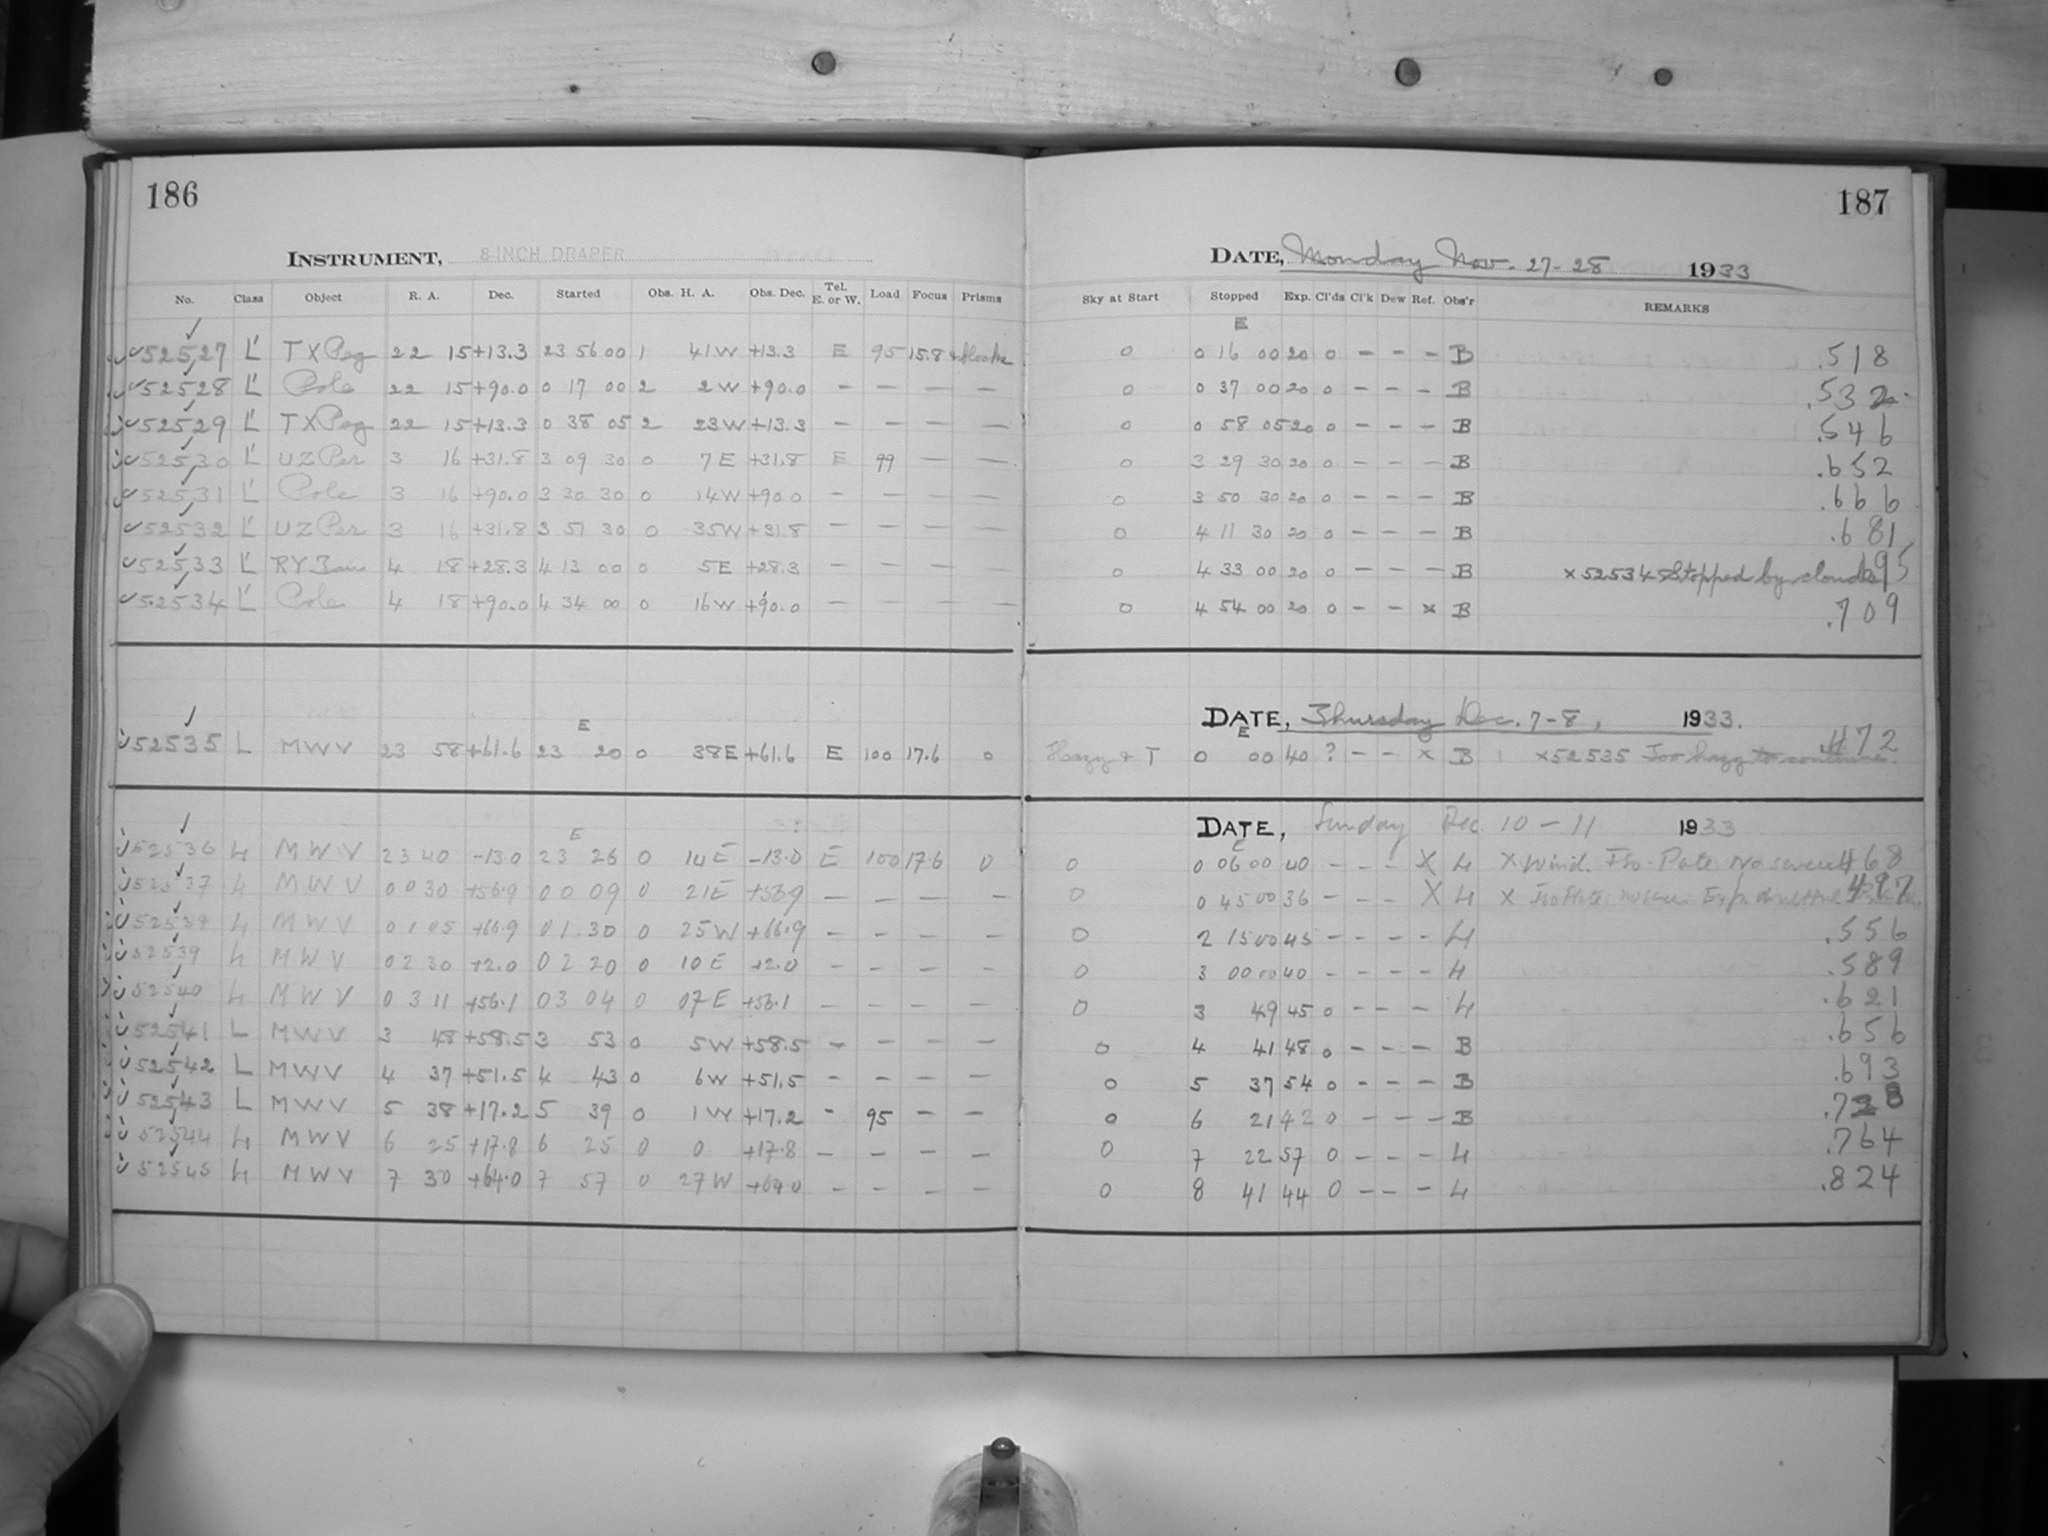 186
INSTRUMENT, 8-INCH DRAPER
No. Class Object R. A. Dec. Started Obs. H. A. Obs. Dec. Tel. E. or W. Load Focus Prisms
52527 L' TX Peg 22 15 +13.3 23 56 00 1 41W +13.3 E 95 15.8
52528 L' Pole 22 15 +90.0 0 17 00 2 2W +90.0 — — — —
52529 L' TX Peg 22 15 +13.3 0 38 05 2 23W +13.3 — — — —
52530 L' UZ Per 3 16 +31.8 3 09 30 0 7E +31.8 E 99 — —
52531 L' Pole 3 16 +90.0 3 30 30 0 14W +90.0 — — — —
52532 L' UZ Per 3 16 +31.8 3 51 30 0 35W +31.8 — — — —
52533 L' RY Tau 4 18 +28.3 4 13 00 0 5E +28.3 — — — —
52534 L' Pole 4 18 +90.0 4 34 00 0 16W +90.0 — — — —
E
52535 L MWV 23 58 +61.6 23 20 0 38E +61.6 E 100 17.6 0
E
52536 L MWV 23 40 -13.0 23 26 0 14E -13.0 E 100 17.6 0
52537 L MWV 00 30 +56.9 00 09 0 21E +56.9 — — — —
52538 L MWV 01 05 +66.9 01 30 0 25W +66.9 — — — —
52539 L MWV 02 30 +2.0 02 20 0 10E +2.0 — — — —
52540 L MWV 03 11 +56.1 03 04 0 07E +56.1 — — — —
52541 L MWV 3 48 +58.5 3 53 0 5W +58.5 — — — —
52542 L MWV 4 37 +51.5 4 43 0 6W +51.5 — — — —
52543 L MWV 5 38 +17.2 5 39 0 1W +17.2 - 95 — —
52544 L MWV 6 25 +17.8 6 25 0 0 +17.8 — — — —
52545 L MWV 7 30 +64.0 7 57 0 27W +64.0 — — — —
187
DATE, Monday Nov. 27-28 1933
Sky at Start Stopped Exp. Cl'ds Cl'k Dew Ref. Obs'r REMARKS
E
0 0 16 00 20 0 — — — B .518
0 0 37 00 20 0 — — — B .532
0 0 58 05 20 0 — — — B .546
0 3 29 30 20 0 — — — B .652
0 3 50 30 20 0 — — — B .666
0 4 11 30 20 0 — — — B .681
0 4 33 00 20 0 — — — B x52534 Stopped by clouds 695
0 4 54 00 20 0 — — x B .709
DATE, Thursday Dec. 7-8, 1933.
E
Hazy & T 0 00 40 ? — — x B x52535 Too hazy to continue. .472
DATE, Sunday Dec. 10-11 1933
E
0 0 06 00 40 — — — X L X Wind. 468
0 0 45 00 36 — — — X L X 497
0 2 15 00 45 — — — — L .556
0 3 00 00 40 — — — — L .589
0 3 49 45 0 — — — L .621
0 4 41 48 0 — — — B .656
0 5 37 54 0 — — — B .693
0 6 21 42 0 — — — B
0 7 22 57 0 — — — L .764
0 8 41 44 0 — — — L .824